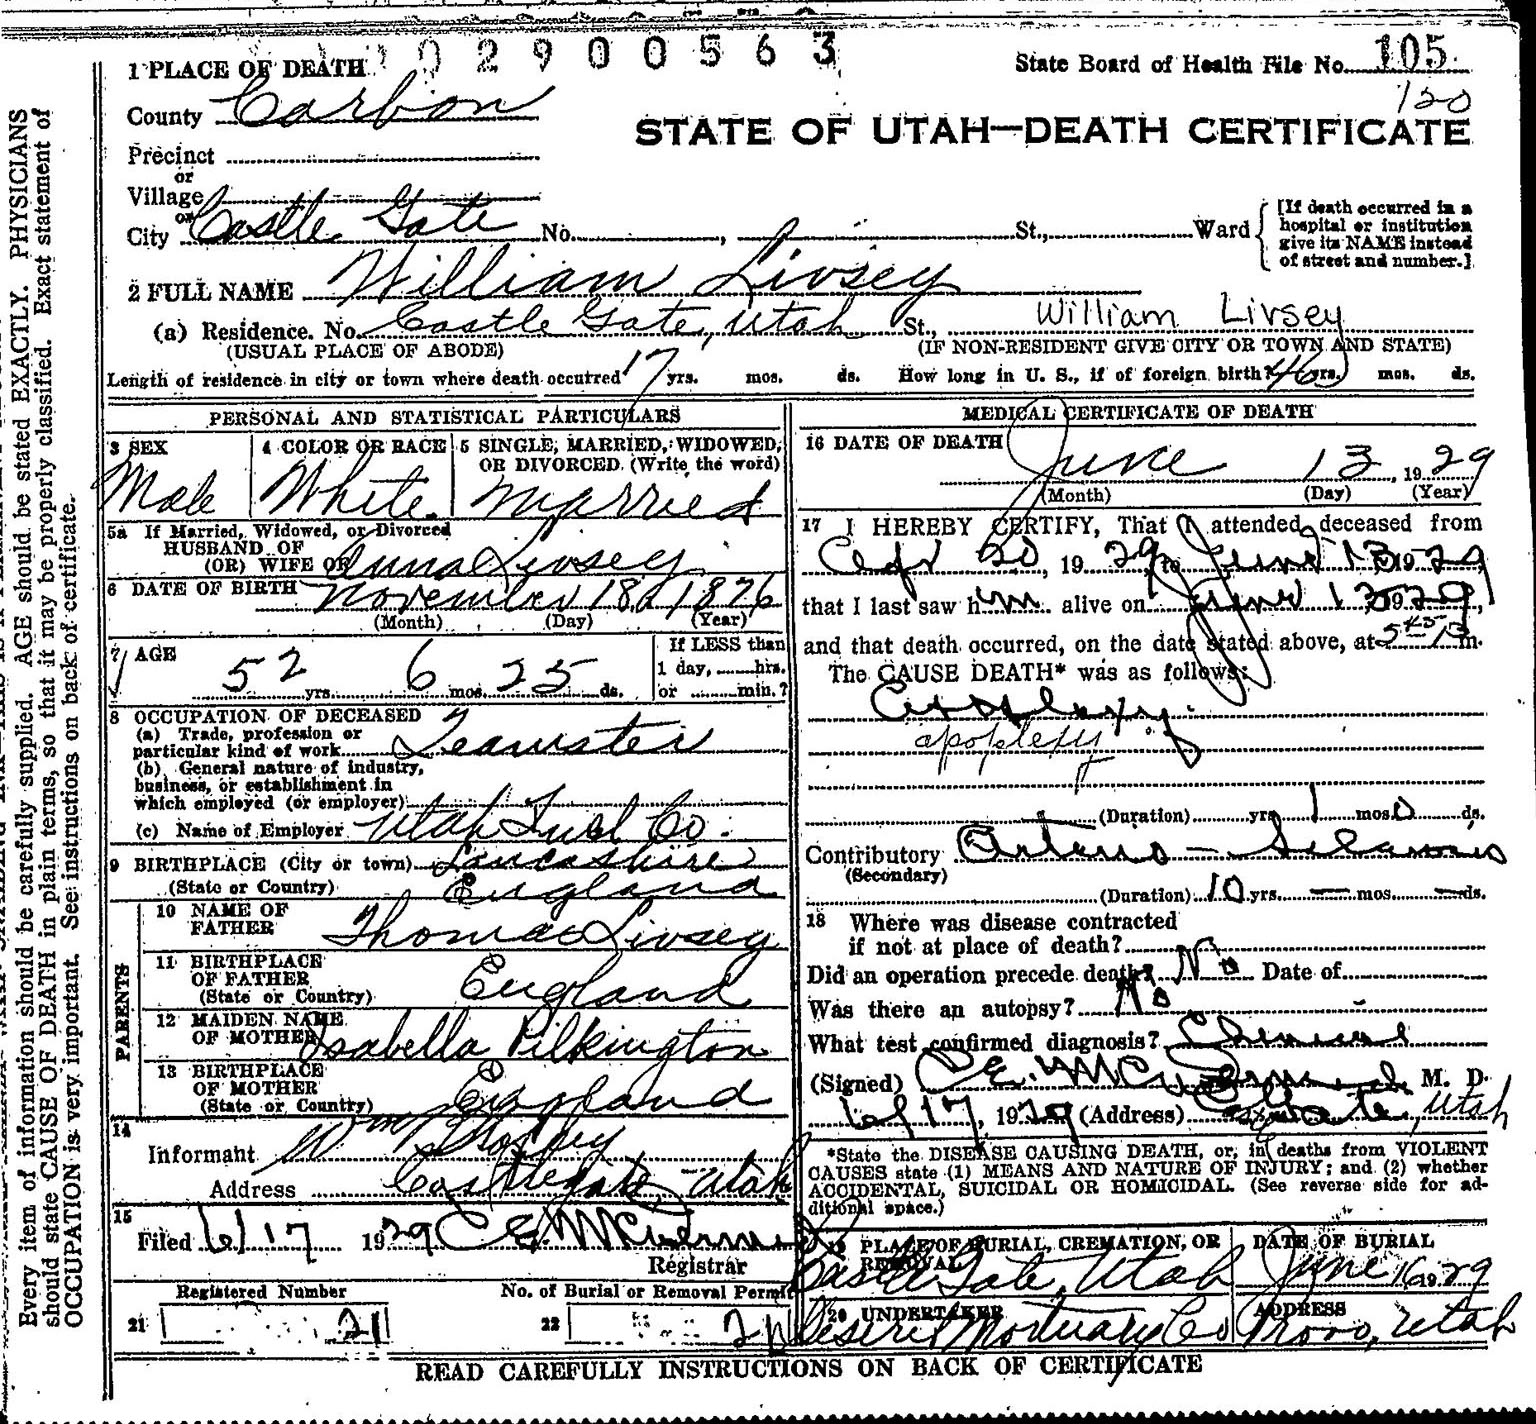 102900563
1 PLACE OF DEATH
State Board of Health File No. 105
120
County Carbon
STATE OF UTAH—DEATH CERTIFICATE
Precinct
or
Village
or
City Castle Gate No. , St., Ward
[If death occurred in a
hospital or institution
give its NAME instead
of street and number.]
2 FULL NAME William Livsey
(a) Residence. No. Castle Gate, Utah St., William Livsey
(USUAL PLACE OF ABODE) (IF NON-RESIDENT GIVE CITY OR TOWN AND STATE)
Length of residence in city or town where death occurred 17 yrs. mos. ds. How long in U. S., if of foreign birth? 46 yrs. mos. ds.
PERSONAL AND STATISTICAL PARTICULARS
3 SEX
Male
4 COLOR OR RACE
White
5 SINGLE, MARRIED, WIDOWED,
OR DIVORCED (Write the word)
Married
5a If Married, Widowed, or Divorced
HUSBAND OF
(OR) WIFE OF Anna Livsey
6 DATE OF BIRTH November 18, 1876
(Month) (Day) (Year)
7 AGE
52 yrs. 6 mos. 25 ds.
If LESS than
1 day, hrs.
or min.?
8 OCCUPATION OF DECEASED
(a) Trade, profession or
particular kind of work Teamster
(b) General nature of industry,
business, or establishment in
which employed (or employer)
(c) Name of Employer Utah Fuel Co.
9 BIRTHPLACE (City or town) Lancashire
(State or Country) England
PARENTS
10 NAME OF
FATHER Thomas Livsey
11 BIRTHPLACE
OF FATHER
(State or Country) England
12 MAIDEN NAME
OF MOTHER Isabella Pilkington
13 BIRTHPLACE
OF MOTHER
(State or Country) England
14
Informant Wm
Address Castlegate, Utah
15
Filed 6/17 1929 C E. McDermid
Registrar
Registered Number No. of Burial or Removal Permit
21 21 22 21
MEDICAL CERTIFICATE OF DEATH
16 DATE OF DEATH
June 13, 1929
(Month) (Day) (Year)
17 I HEREBY CERTIFY, That I attended deceased from
20, 1929, to June 13 1929
that I last saw him alive on June 13 1929,
and that death occurred, on the date stated above, at m.
The CAUSE DEATH* was as follows:
Apoplexy.
apoplexy
(Duration) yrs. 1 mos. 0 ds.
Contributory Arterio-Sclerosis
(Secondary)
(Duration) 10 yrs. — mos. — ds.
18 Where was disease contracted
if not at place of death?
Did an operation precede death? No Date of
Was there an autopsy? No
What test confirmed diagnosis? Clinical
(Signed) C E. McDermid, M. D.
6/17, 1929 (Address) Castle Gate, Utah
*State the DISEASE CAUSING DEATH, or, in deaths from VIOLENT
CAUSES state (1) MEANS AND NATURE OF INJURY; and (2) whether
ACCIDENTAL, SUICIDAL OR HOMICIDAL. (See reverse side for ad-
ditional space.)
19 PLACE OF BURIAL, CREMATION, OR
REMOVAL
Castle Gate, Utah
DATE OF BURIAL
June 16 1929
20 UNDERTAKER
Deseret Mortuary Co
ADDRESS
Provo, Utah
READ CAREFULLY INSTRUCTIONS ON BACK OF CERTIFICATE
Every item of information should be carefully supplied. AGE should be stated EXACTLY. PHYSICIANS
should state CAUSE OF DEATH in plain terms, so that it may be properly classified. Exact statement of
OCCUPATION is very important. See instructions on back of certificate.